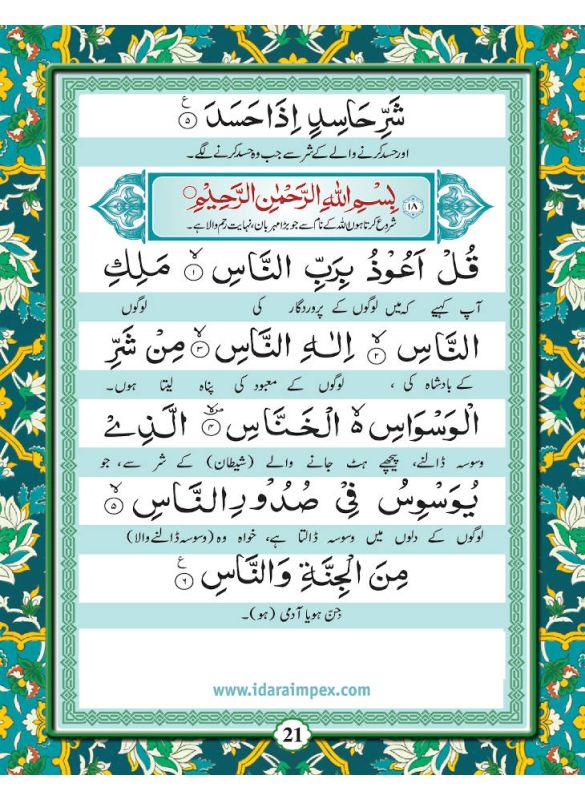 شَرِّ حَاسِدٍ اِذَا حَسَدَ ۝۵ ع
اور حسد کرنے والے کے شر سے جب وہ حسد کرنے لگے۔
۱۸ بِسْمِ اللهِ الرَّحْمٰنِ الرَّحِيْمِ
شروع کرتا ہوں اللہ کے نام سے جو بڑا مہربان، نہایت رحم والا ہے۔
قُلْ اَعُوْذُ بِرَبِّ النَّاسِ ۝۱ۙ مَلِكِ
آپ کہیے کہ میں لوگوں کے پروردگار کی لوگوں
النَّاسِ ۝۲ۙ اِلٰهِ النَّاسِ ۝۳ۙ مِنْ شَرِّ
کے بادشاہ کی ، لوگوں کے معبود کی پناہ لیتا ہوں۔
الْوَسْوَاسِ ۙ۬ الْخَنَّاسِ ۝۴ الَّذِيْ
وسوسہ ڈالنے، پیچھے ہٹ جانے والے (شیطان) کے شر سے، جو
يُوَسْوِسُ فِيْ صُدُوْرِ النَّاسِ ۝۵ۙ
لوگوں کے دلوں میں وسوسہ ڈالتا ہے، خواہ وہ (وسوسہ ڈالنے والا)
مِنَ الْجِنَّةِ وَالنَّاسِ ۝۶ ع
جِنّ ہو یا آدمی (ہو)۔
www.idaraimpex.com
21